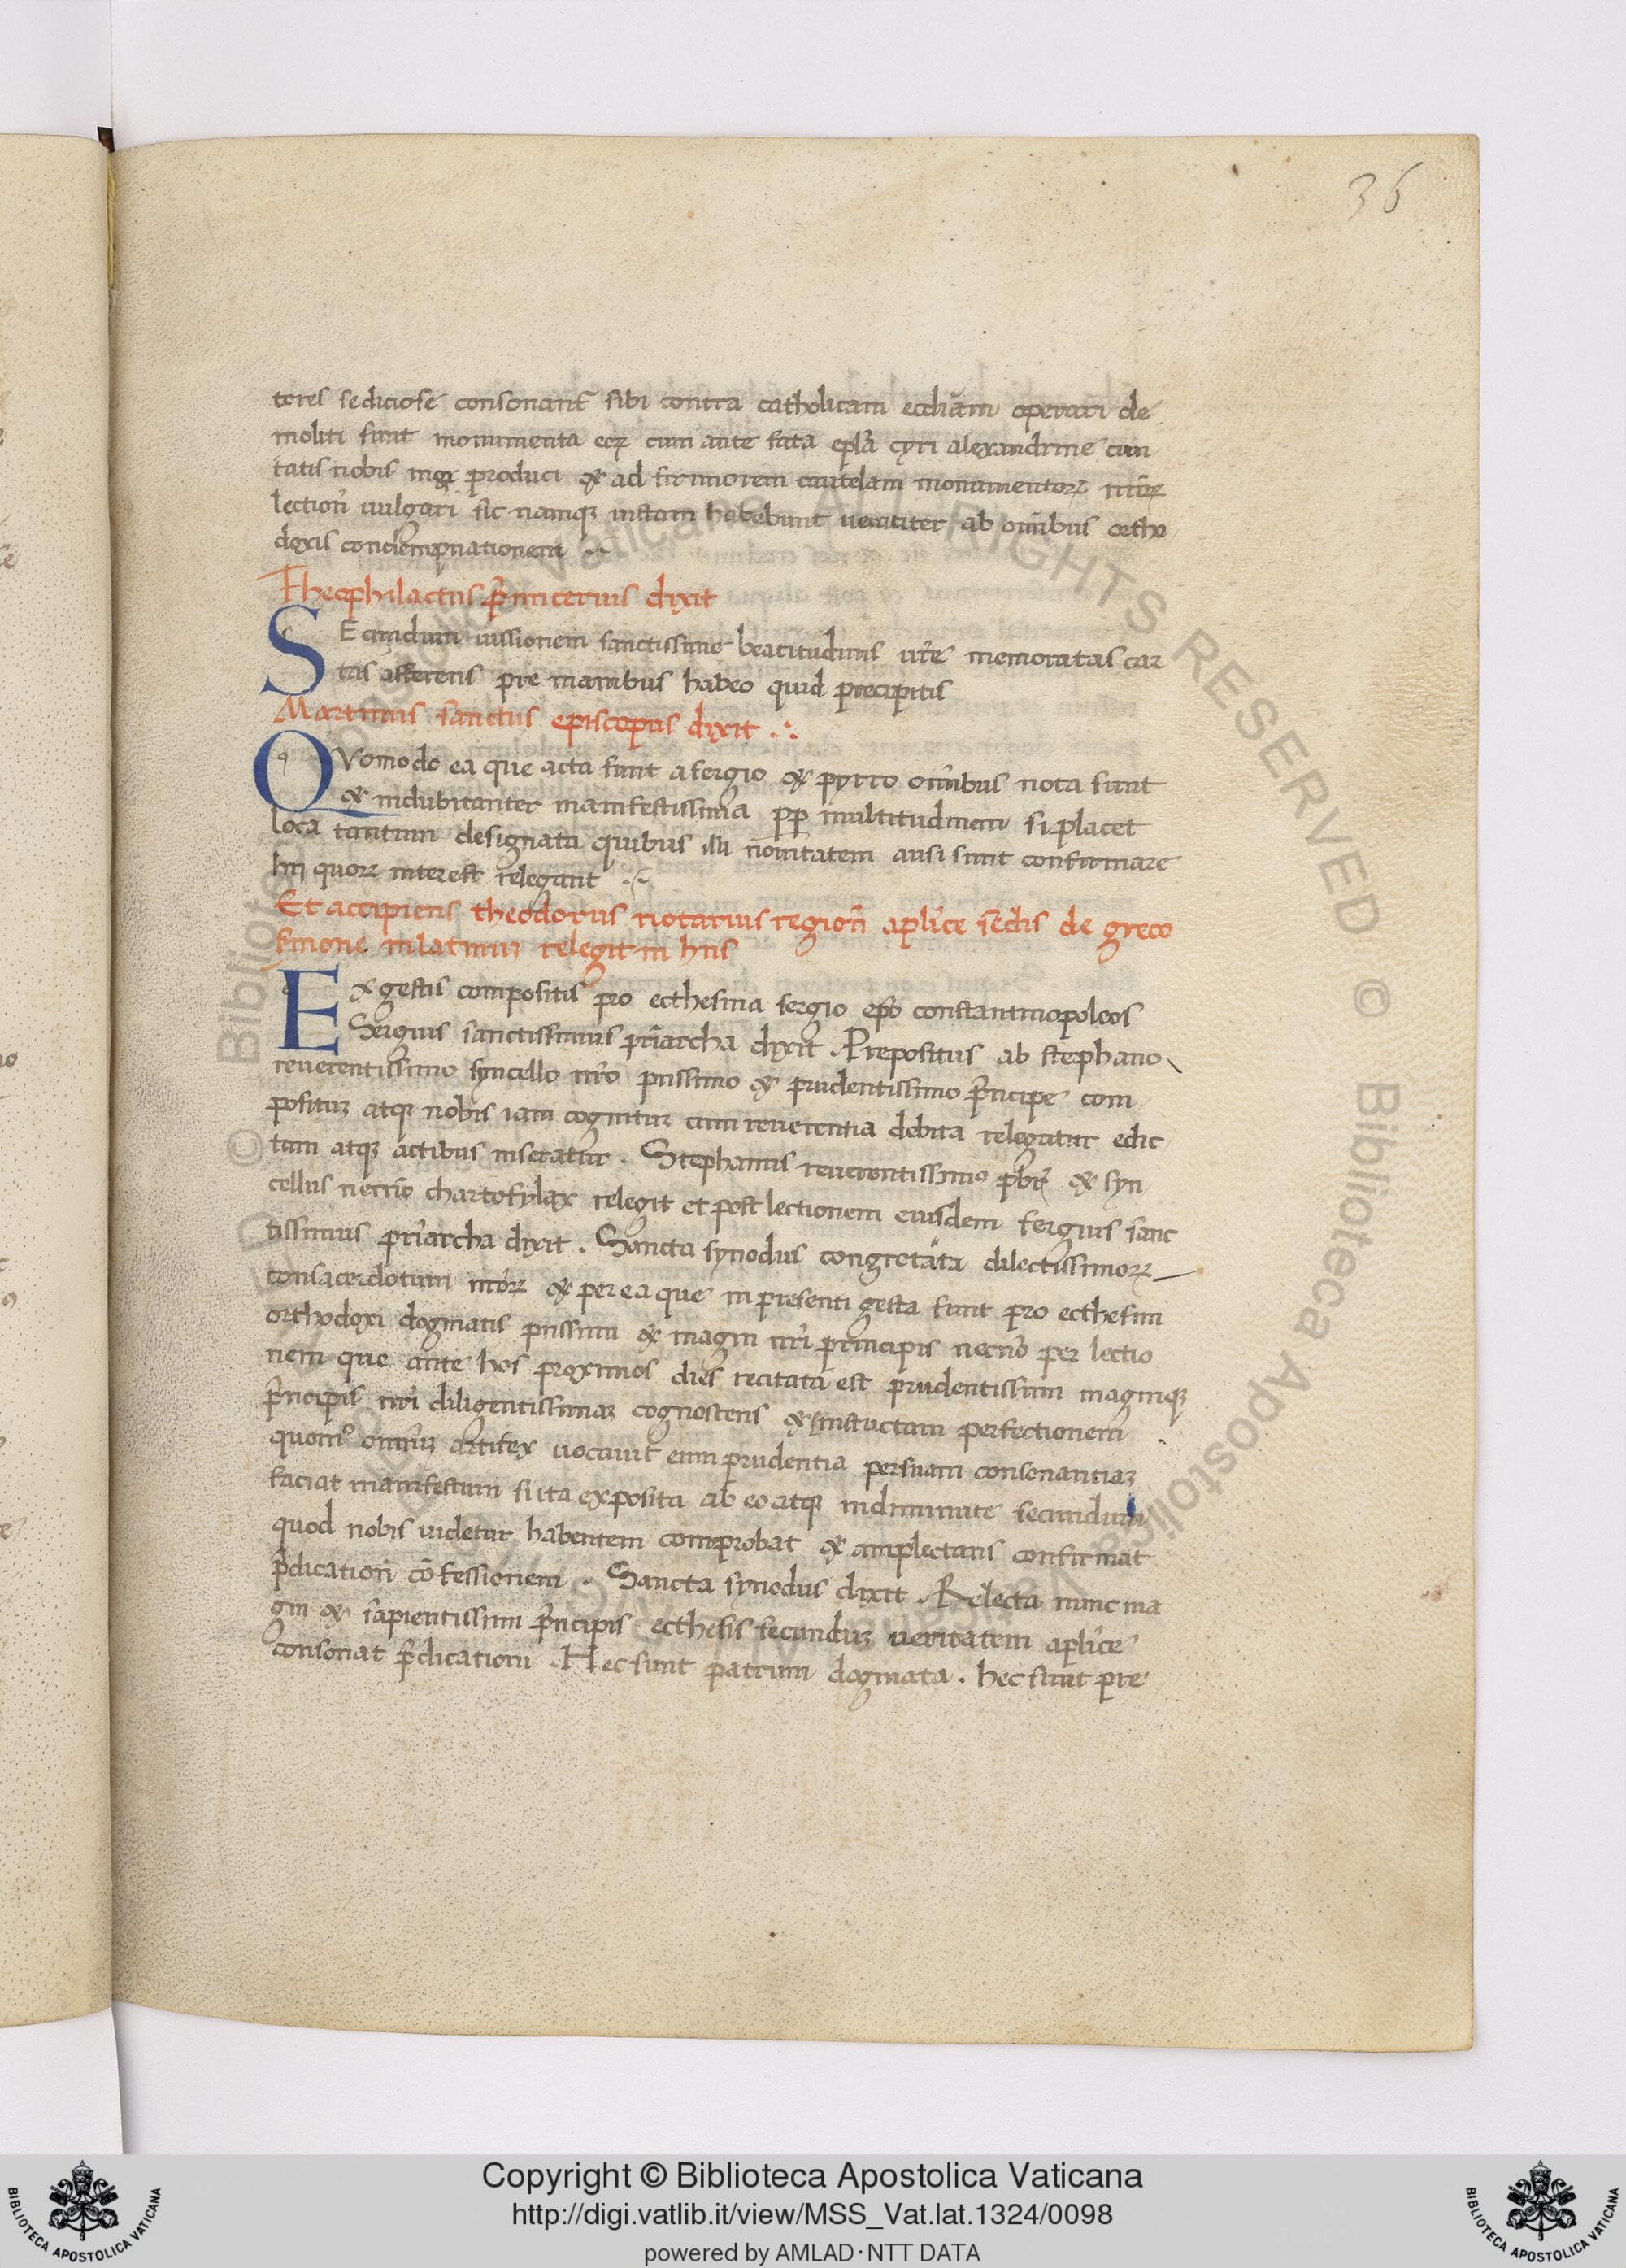 36
tores sediciose consonant̄ sibi contra catholicam eccl̄iam operari de
moliti sunt monumenta eoꝝ cum ante fata epl̄a cyri alexandrine ciui
tatis nobis mox produci & ad firmiorem cautelam monumentoꝝ nr̄oꝝ
lection̄ uulgari sic namqꝫ iustam habebunt ueraciter ab om̄ibus ortho
doxis condempnationem
Theophilactus p̄rimicerius dixit
SEcundum iussionem sanctissime beatitudinis ur̄e memoratas car
tas afferens pre manibus habeo quid precipitis
Martinus sanctus episcopus dixit
QVomodo ea que acta sunt a sergio & pyrro om̄ibus nota sunt
& indubitanter manifestissima pp̄ multitudinem si placet
loca tantum designata quibus illi nouitatem ausi sunt confirmare
hij quoꝝ interest relegant
Et accipiens theodorus notarius region̄ apl̄ice sedis de greco
s̄mone in latinuꝫ relegit in hiis
Ex gestis compositis pro ecthesina sergio ep̄o constantinopoleos
Sergius sanctissimus pr̄iarcha dixit . Prepositus ab stephano
reuerentissimo syncello nr̄o piissimo & prudentissimo p̄ncipe com
positus atqꝫ nobis iam cognituꝫ cum reuerentia debita relegatur edic
tum atqꝫ actibus inseratur . Stephanus reuerentissimꝰ pb̄r & syn
cellus necnō chartofylax relegit et post lectionem eiusdem sergius sanc
tissimus pr̄iarcha dixit . Sancta synodus congretata dilectissimoꝝ
consacerdotum nr̄oꝝ & per ea que in presenti gesta sunt pro ecthesim
orthodoxi dogmatis piissimi & magni nr̄i principis necnō per lectio
nem que ante hos proximos dies recitata est prudentissimi magniqꝫ
p̄ncipis nr̄i diligentissimaꝫ cognoscens & instructam perfectionem
quomͦ om̄iuꝫ artifex uocauit eum prudentia persuam consonanciaꝫ
faciat manifestum si ita exposita ab eo atqꝫ indiminute secundum
quod nobis uidetur habentem comprobat & amplectans confirmat
p̄dication̄ cōfessionem . Sancta synodus dixit . Relecta nunc ma
gni & sapientissimi p̄ncipis ecthesis secunduꝫ ueritatem apl̄ice
consonat p̄dicationi . Hec sunt patrum dogmata . hec sunt pre
Copyright © Biblioteca Apostolica Vaticana
http://digi.vatlib.it/view/MSS_Vat.lat.1324/0098
powered by AMLAD·NTT DATA